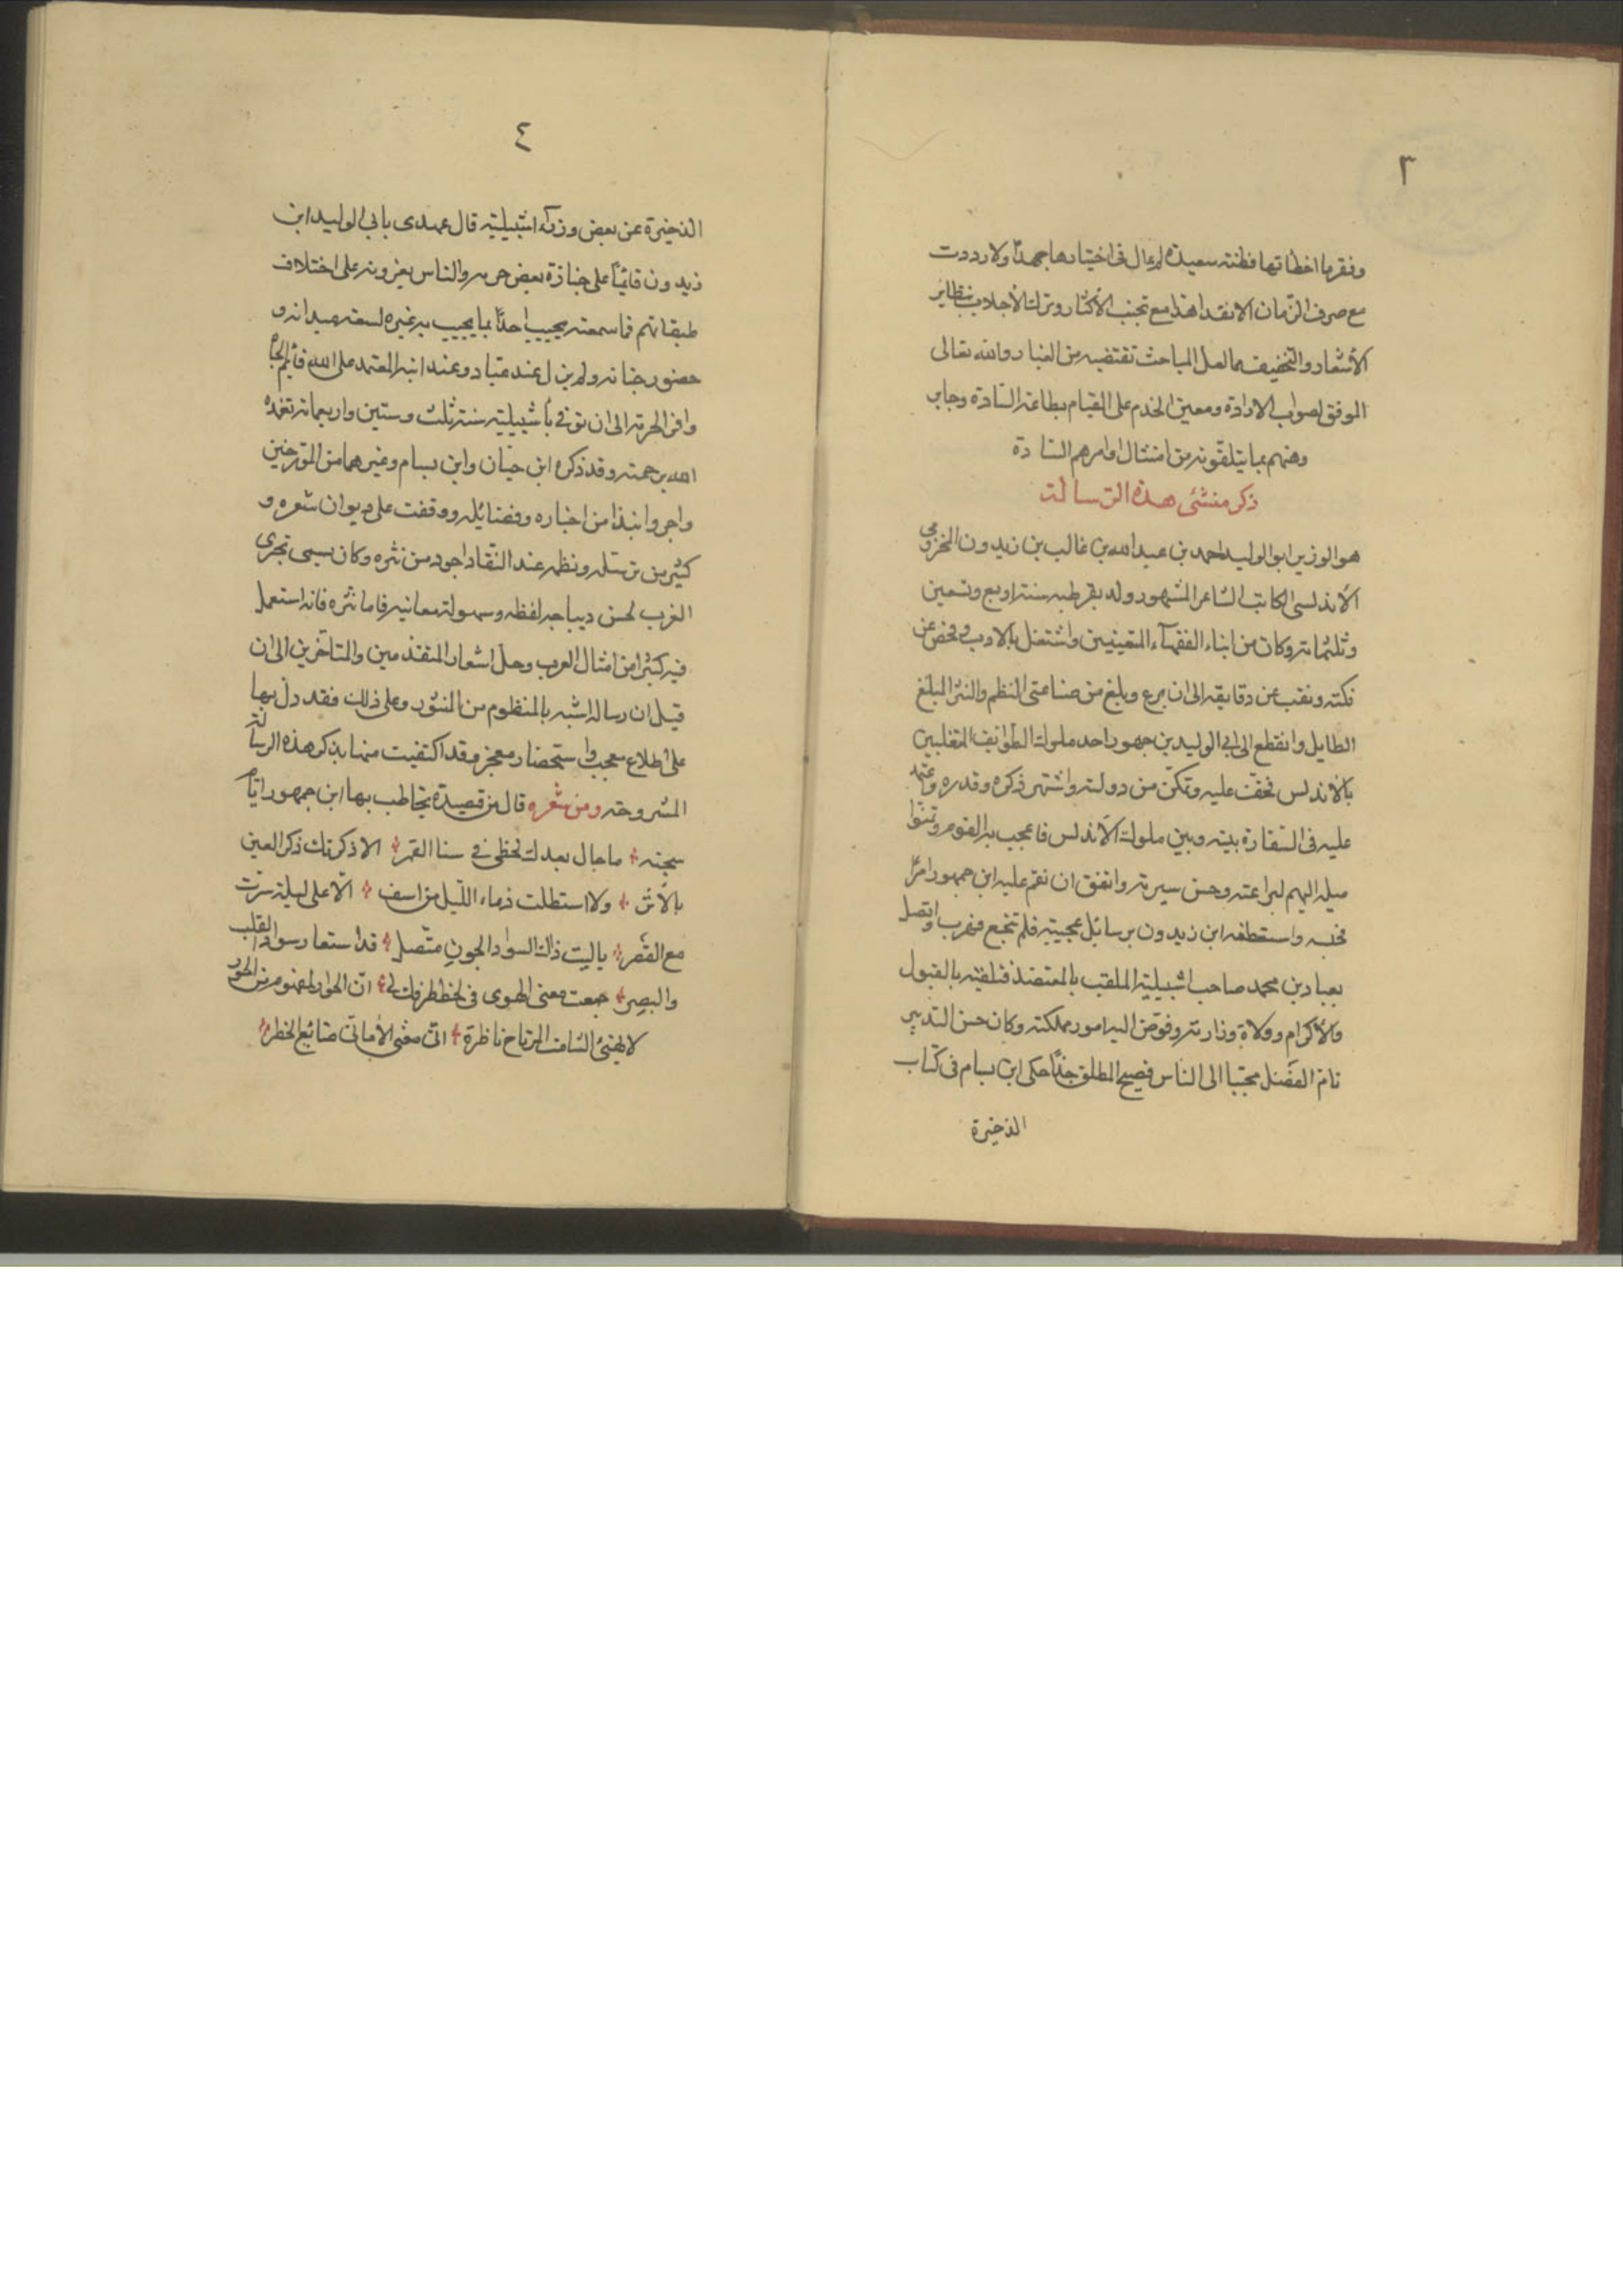 ٣
وفقرما اخطاتها فطنه سعيدة لم ال فى اختيارها جهدًا ولا رددت
مع صرف الزمان الانقد اهذا مع تجنب الأكثار وترك الأجلاب بنظاير
الأشعار والتخفيف مما لعل المباحث تقتضيه من الغبار والله تعالى
الموفق لصواب الارادة ومعين الخدم على القيام بطاعة السادة وجابر
وهنهم بما يتلقونه من امتثال اوامرهم السادة
ذكر منشئ هذه الرسالة
هو الوزير ابو الوليد احمد بن عبد الله بن غالب بن زيدون المخزومي
الأندلسى الكاتب الشاعر المشهور ولد بقرطبه سنة اربع وتسعين
وثلثمائة وكان من ابناء الفقهآء المتعينين واشتغل بالادب وفحص عن
نكته ونقب عن دقايقه الى ان برع وبلغ من صناعتى النظم والنثر المبلغ
الطايل وانقطع الى ابى الوليد بن جهور احد ملوك الطوائف المتغلبين
بالاندلس فخفّ عليه وتمكّن من دولته واشتهر ذكره وقدره واعتمد
عليه فى السفارة بينه وبين ملوك الأندلس فاعجب به القوم وتمنوا
ميله اليهم لبراعته وحسن سيرته واتفق ان نقم عليه ابن جهور امرًا
فحبسه واستعطفه ابن زيدون برسائل عجيبة فلم تنجع فهرب واتصل
بعباد بن محمد صاحب اشبيلية الملقب بالمعتضد فتلقته بالقبول
والأكرام وولاه وزارته وفوّض اليه امور مملكته وكان حسن التدبير
تام الفضل محببا الى الناس فصيح المنطق جدًّا حكى ابن بسام فى كتاب
الذخيرة
٤
الذخيرة عن بعض وزرآء اشبيلية قال عهدى بابى الوليد ابن
زيدون قائمًا على جنازة بعض حرمه والناس يعزونه على اختلاف
طبقاتهم فما سمعته يجيب احدًا بما يجيب به غيره لسعة ميدانه و
حضور جنانه ولم يزل عند عباد وعند ابنه المعتمد على الله قائم الجاه
وافر الحرمة الى ان توفى باشبيلية سنة ثلث وستين واربعمائة تغمده
الله برحمته وقد ذكره ابن حيّان وابن بسام وغيرهما من المؤرخين
واجروا نبذا من اخباره وفضائله ووقفت على ديوان شعره و
كثير من ترسله ونظمه عند النقاد اجود من نثره وكان يسمى بحترى
الغرب لحسن ديباجه لفظه وسهولة معانيه فاما نثره فانه استعمل
فيه كثيرا من امثال العرب وحلّ اشعار المتقدمين والمتاخرين الى ان
قيل ان رسائله اشبه بالمنظوم من المنثور وعلى ذلك فقد دل بها
على اطلاع معجب واستحضار معجز وقد اكتفيت منها بذكر هذه الرسالة
المشروحة ومن شعره قال من قصيدة يخاطب بها ابن جهور ايّام
سجنه ما جال بعدك لحظى فى سنا القمر الا ذكرتك ذكر العين
بالأثر ولا استطلت ذماء اللّيل من اسف الّا على ليلة سرّت
مع القصر ياليت ذاك السواد الجون متّصل قد استعار سواد القلب
والبصر جمعت معنى الهوى فى لحظ طرفك لى انّ الحوار لمفهوم من الحور
لا يهنئ الشامت المرتاح ناظرة انّى معنّى الأمانى ضائع الخطر